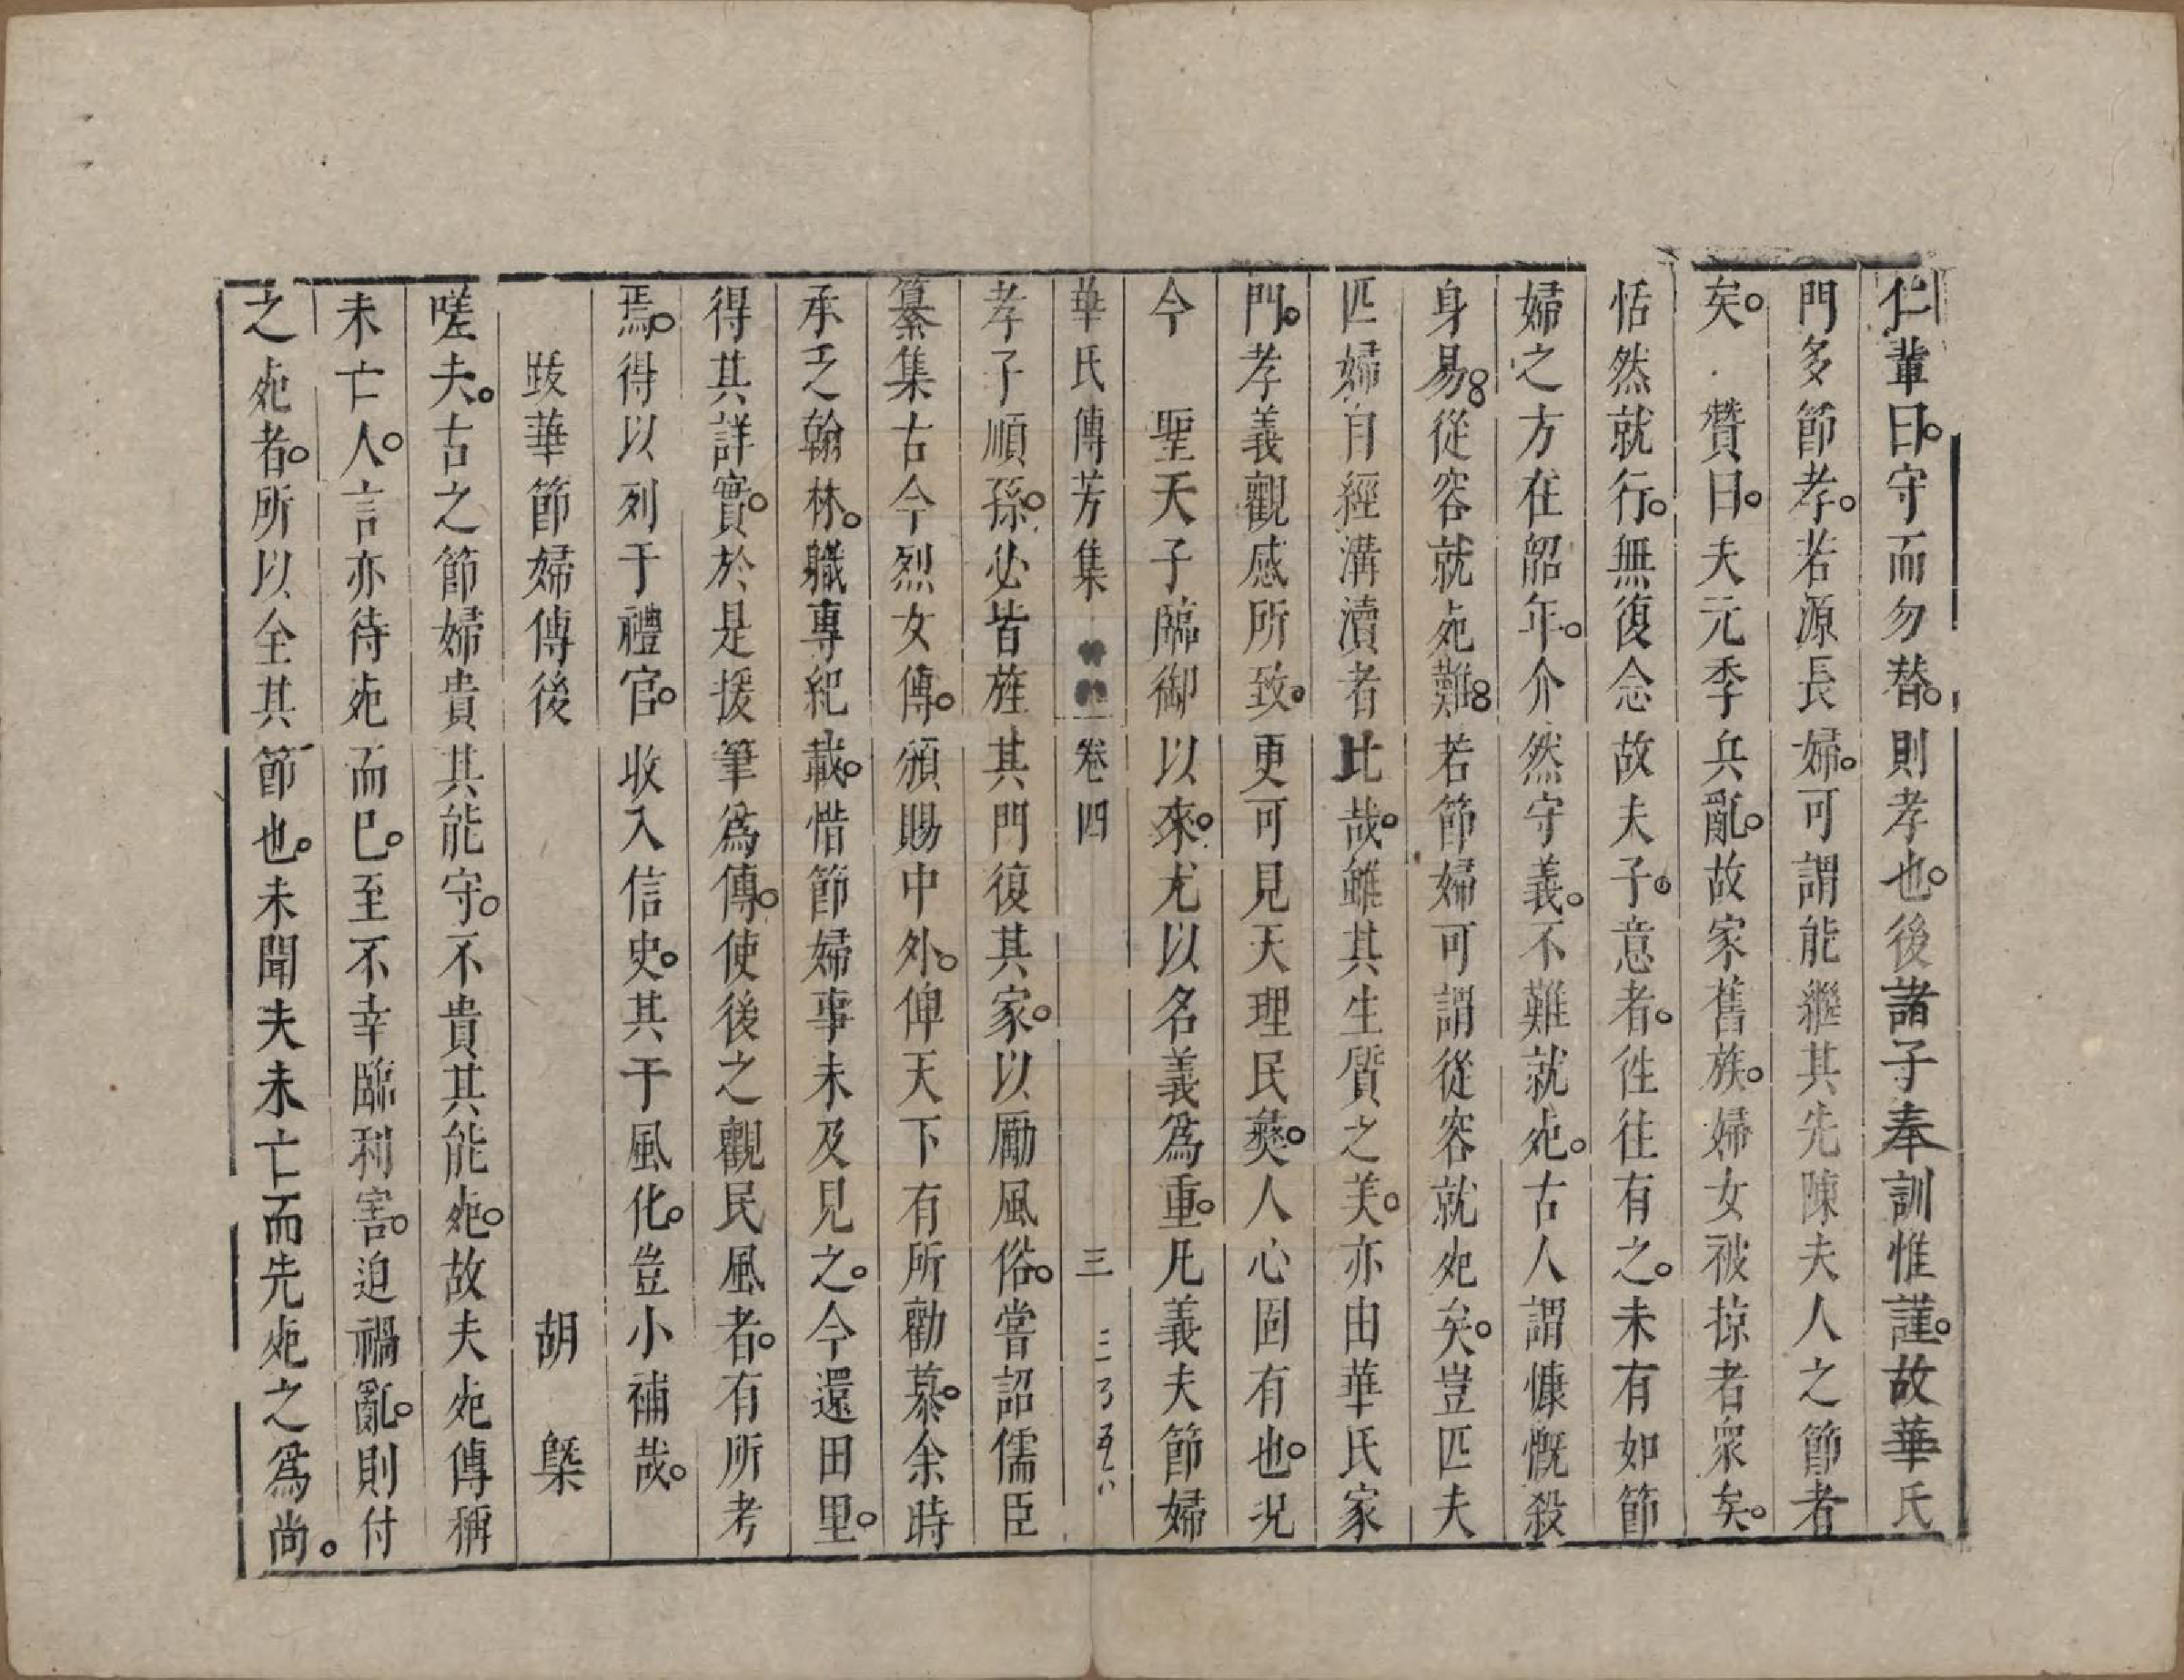 仁輩曰。守而勿替。則孝也。後諸子奉訓惟謹。故華氏
門多節孝。若源長婦。可謂能繼其先陳夫人之節者
矣。　贊曰。夫元季兵亂。故家舊族。婦女被掠者衆矣。
恬然就行。無復念故夫子。意者。徃往有之。未有如節
婦之方在韶年。介然守義。不難就死。古人謂慷慨殺
身易。從容就死難。若節婦可謂從容就死矣。豈匹夫
匹婦自經溝瀆者比哉。雖其生質之美。亦由華氏家
門。孝義觀感所致。更可見天理民彝。人心固有也。況
今　聖天子臨御以來。尤以名義爲重。凡義夫節婦
華氏傳芳集　卷四　三
孝子順孫。必皆旌其門復其家。以勵風俗。嘗詔儒臣
纂集古今烈女傳。頒賜中外。俾天下有所勸慕。余時
承乏翰林。職專紀載。惜節婦事未及見之。今還田里。
得其詳實。於是援筆爲傳。使後之觀民風者。有所考
焉。得以列于禮官。收入信史。其于風化。豈小補哉。
跋華節婦傳後　　胡　槩
嗟夫。古之節婦貴其能守。不貴其能死。故夫死傳稱
未亡人。言亦待死而已。至不幸臨利害。迫禍亂。則付
之死者。所以全其節也。未聞夫未亡而先死之爲尚。